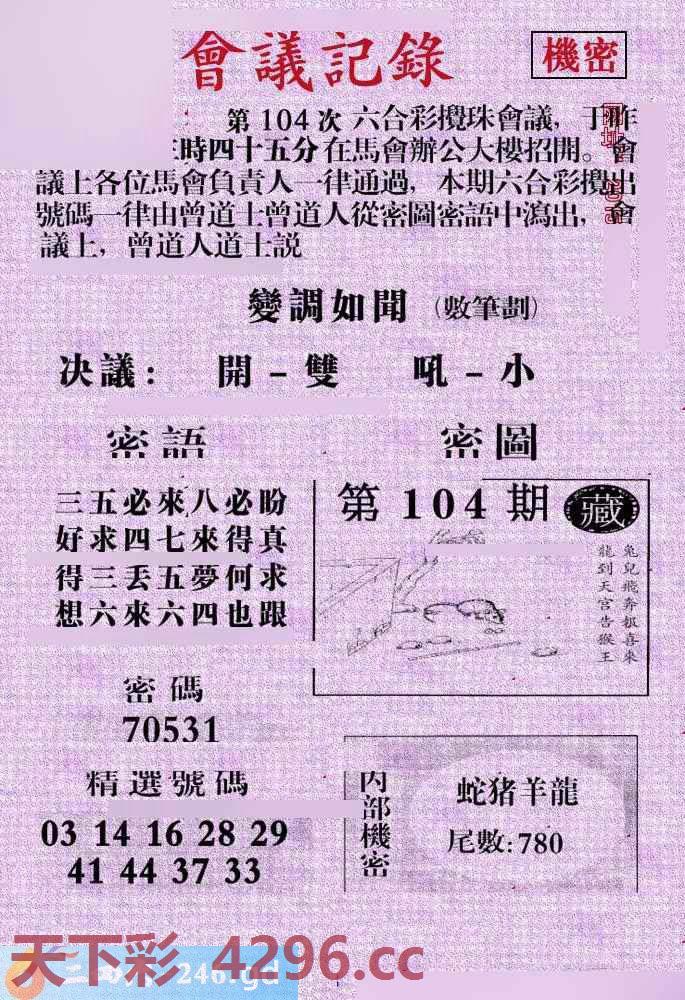 會議記錄
機密
第104次 六合彩攪珠會議，于昨
時四十五分在馬會辦公大樓招開。會
議上各位馬會負責人一律通過，本期六合彩攪出
號碼一律由曾道士曾道人從密圖密語中瀉出，會
議上，曾道人道士説
變調如聞（數筆劃）
决議：　開－雙　吼－小
密語
三五必來八必盼
好求四七來得真
得三丢五夢何求
想六來六四也跟
密圖
第104期
藏
兔兒飛奔报喜來
龍到天宫告猴王
密碼
70531
精選號碼
03 14 16 28 29
41 44 37 33
内部機密
蛇猪羊龍
尾數:780
天下彩 4296.cc
246.gd